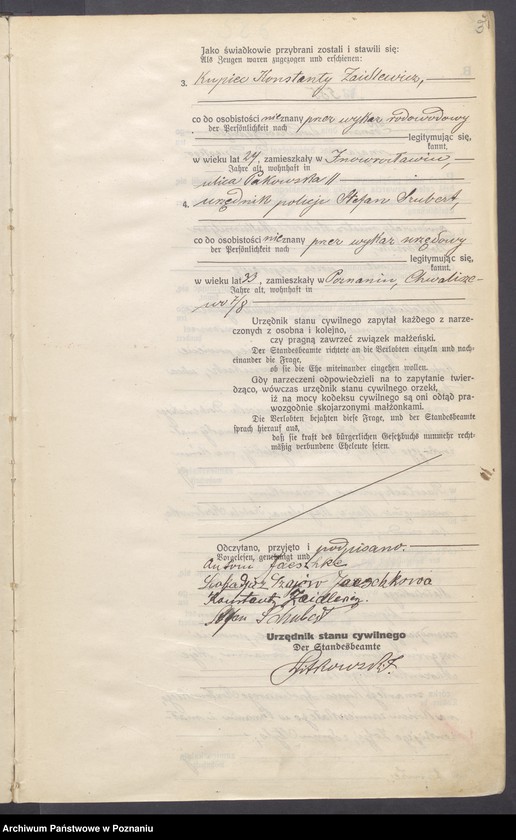 Jako świadkowie przybrani zostali i stawili się:
Als Zeugen waren zugezogen und erschienen:
3. Kupiec Konstanty Zaidlewicz,
co do osobistości nieznany przez wykaz rodowodowy
der Persönlichkeit nach
legitymując się,
kannt,
w wieku lat 24, zamieszkały w Inowrocławiu,
Jahre alt, wohnhaft in
ulica Pakowska 11
4. urzędnik policji Stefan Szubert,
co do osobistości nieznany przez wykaz urzędowy
der Persönlichkeit nach
legitymując się,
kannt.
w wieku lat 33, zamieszkały w Poznaniu, Chwalisze-
Jahre alt, wohnhaft in
wo 7/8
Urzędnik stanu cywilnego zapytał każdego z narze-
czonych z osobna i kolejno,
czy pragną zawrzeć związek małżeński.
Der Standesbeamte richtete an die Verlobten einzeln und nach-
einander die Frage,
ob sie die Ehe miteinander eingehen wollen.
Gdy narzeczeni odpowiedzieli na to zapytanie twier-
dząco, wówczas urzędnik stanu cywilnego orzekł,
iż na mocy kodeksu cywilnego są oni odtąd pra-
wozgodnie skojarzonymi małżonkami.
Die Verlobten bejahten diese Frage, und der Standesbeamte
sprach hierauf aus,
daß sie kraft des bürgerlichen Gesetzbuchs nunmehr recht-
mäßig verbundene Eheleute seien.
Odczytano, przyjęto i podpisano.
Vorgelesen, genehmigt und
Antoni Jaeschke
Jaeschkowa
Konstanty Zaidlewicz.
Stefan Schubert
Urzędnik stanu cywilnego
Der Standesbeamte
Archiwum Państwowe w Poznaniu